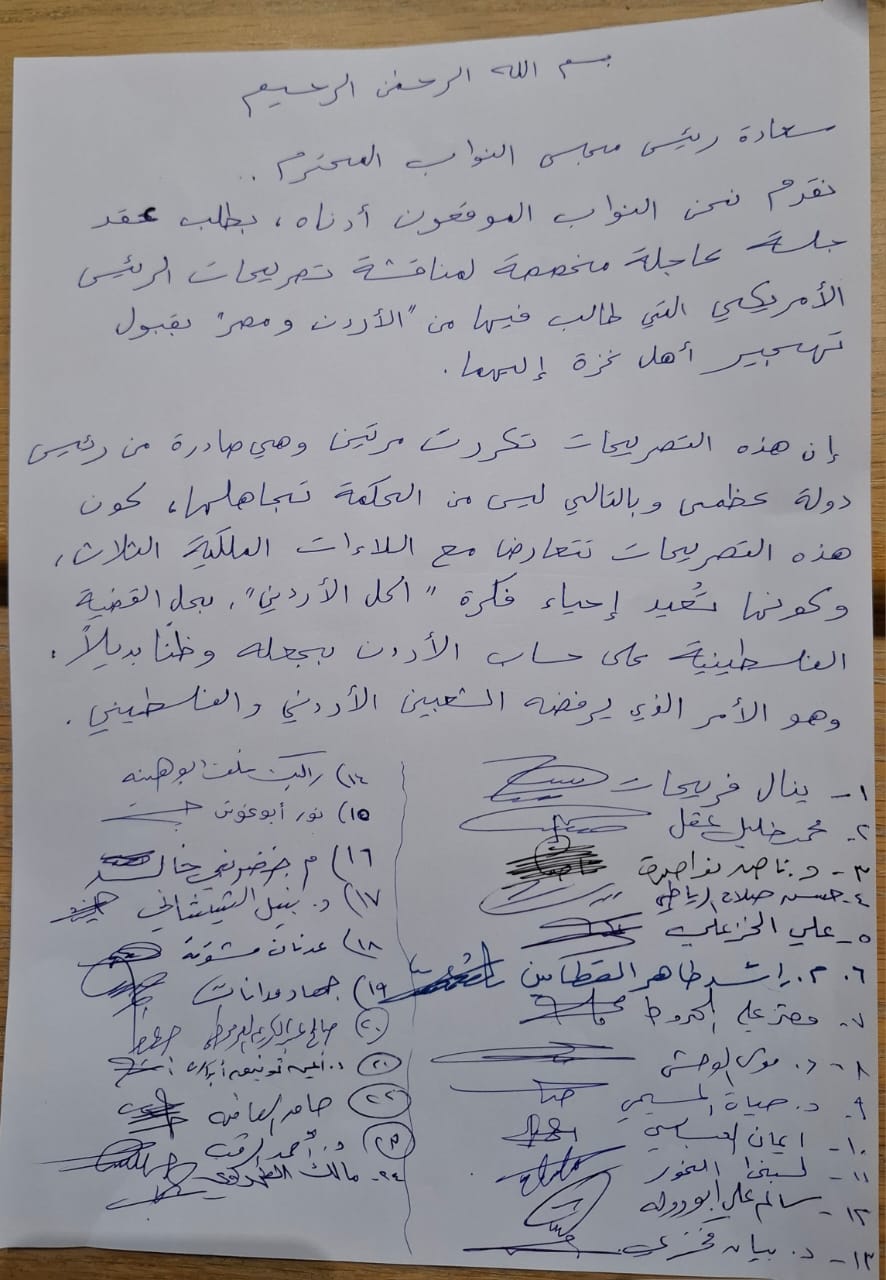 بسم الله الرحمن الرحيم
سعادة رئيس مجلس النواب المحترم ..
نقدم نحن النواب الموقعون أدناه، بطلب عقد
جلسة عاجلة مخصصة لمناقشة تصريحات الرئيس
الأمريكي التي طالب فيها من "الأردن ومصر" بقبول
تهجير أهل غزة إليهما.
إن هذه التصريحات تكررت مرتين وهي صادرة من رئيس
دولة عظمى وبالتالي ليس من الحكمة تجاهلها، كون
هذه التصريحات تتعارض مع اللاءات الملكية الثلاث،
وكونها تُعيد إحياء فكرة "الحل الأردني"، بحل القضية
الفلسطينية على حساب الأردن بجعله وطنًا بديلاً،
وهو الأمر الذي يرفضه الشعبين الأردني والفلسطيني.
١- ينال فريحات
٢- محمد خليل عقل
٣- د. ناصر نواصرة
٤- حسن صلاح الرياطي
٥- علي الخزعلي
٦. م. راشد طاهر القطامين
٧- معتز علي الهروط
٨- د. موسى الوحش
٩- د. حياة المسيمي
١٠- ايمان العباسي
١١- لبنى النمور
١٢- سالم علي ابودوله
١٣- د. بيان
١٤) راكين خلف ابوهنية
١٥) نور أبوغوش
١٦) م خضر بني خالد
١٧) د. نبيل الشيشاني
١٨) عدنان مشوقة
١٩) جهاد مدانات
٢٠) صالح عبدالكريم
٢١) د.
٢٢)
٢٣) د. أحمد الرقب
٢٤- مالك الطهراوي